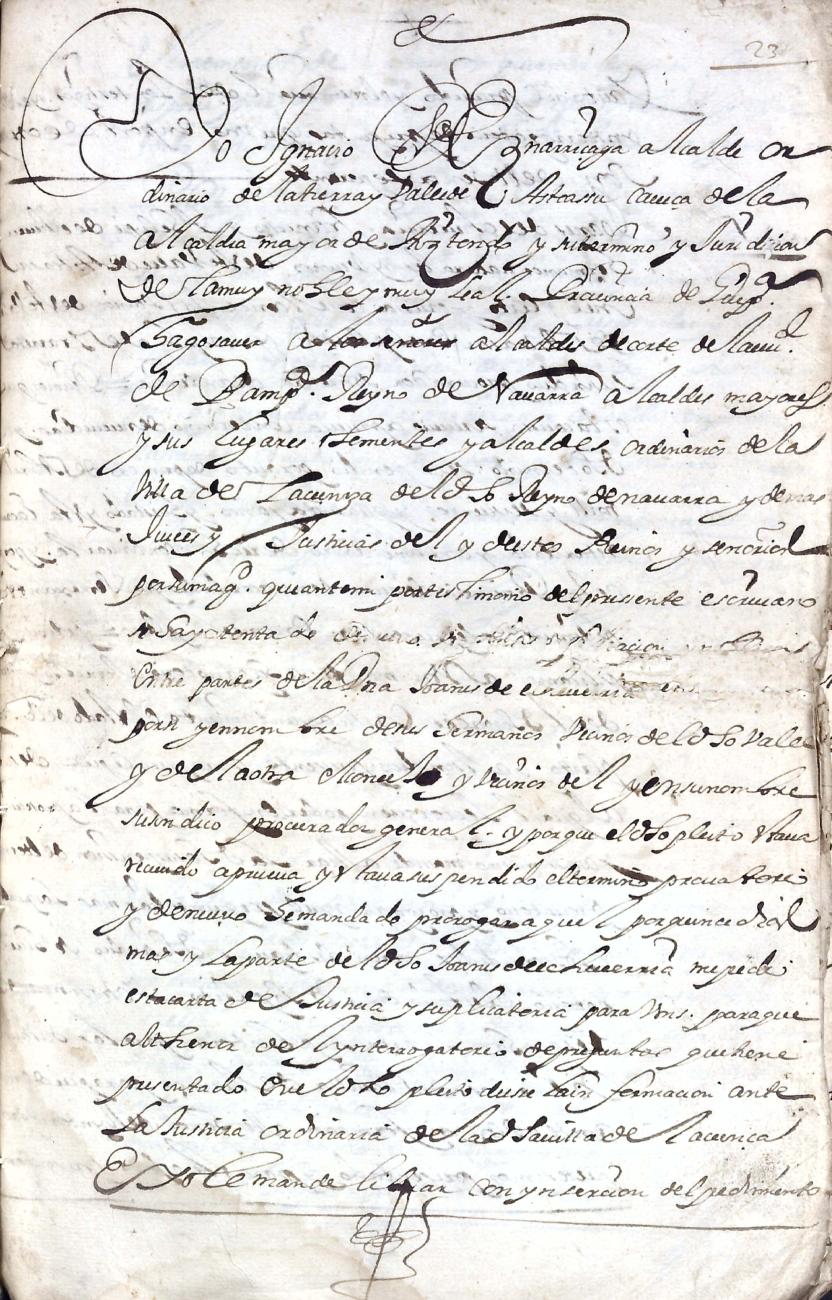 23
Yo Ygnacio de Enarriçaga alcalde or
dinario de la tierra y Valle de Asteassu caveca de la
alcaldia mayor de Aiztondo y su termino y Juridicion
de la muy noble y muy Leal Provincia de Guipª
hago saver a los señores alcaldes de corte de la ciuᵈ
de Pampª Reyno de Navarra alcaldes mayores
y sus lugares thenientes y alcaldes ordinarios de la
Villa de Lacunza del dho Reyno de navarra y demas
Jueces y Justicias del y de estos Reinos y señorios
por su magᵈ que ante mi por testimonio del presente escrivano
se ha yntentado
Entre partes de la Una Joanes de echeverria
por si y en nombre de sus hermanos vecinos del dho Valle
y de la otra el concejo y vecinos del y en su nombre
su sindico procurador general y porque el dho pleito estava
recivido a prueva y estava suspendido el termino provatorio
y de nuevo he mandado prorogar aquel por quince dias
mas y la parte del dho Joanes de echeverria me pedio
esta carta de Justicia y suplicatoria para Vms. para que
al thenor del ynterrogatorio de preguntas que tiene
presentado en el dho pleito diese la informacion ante
La Justicia ordinaria de la dha villa de lacunça
E yo le mande librar con ynsercion del pedimiento